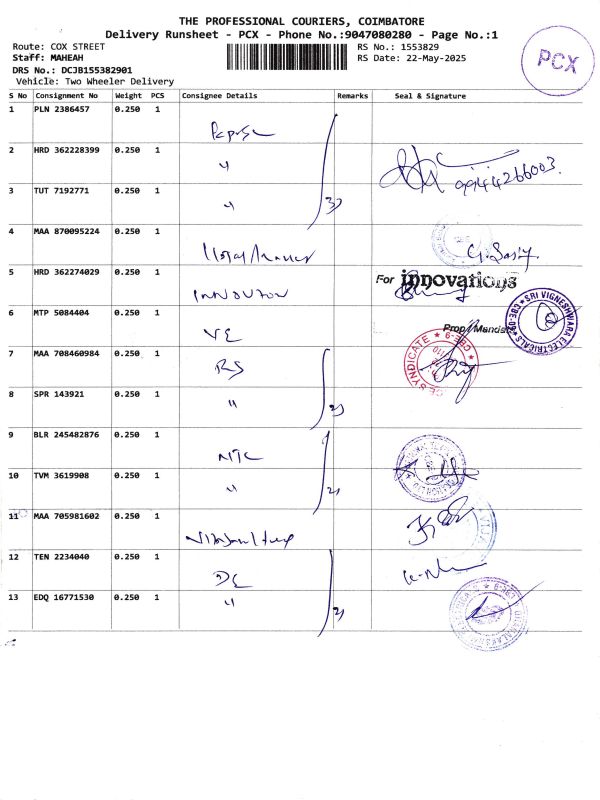 THE PROFESSIONAL COURIERS, COIMBATORE
Delivery Runsheet - PCX - Phone No.:9047080280 - Page No.:1
Route: COX STREET
RS No.: 1553829
Staff: MAHEAH
RS Date: 22-May-2025
DRS No.: DCJB155382901
Vehicle: Two Wheeler Delivery
PCX
S No Consignment No Weight PCS Consignee Details Remarks Seal & Signature
1 PLN 2386457 0.250 1
2 HRD 362228399 0.250 1 " 9944266003
3 TUT 7192771 0.250 1 " 3
4 MAA 870095224 0.250 1 G. Sasi
5 HRD 362274029 0.250 1 For innovations
6 MTP 5084404 0.250 1 VE Prop / Mandist
SRI VIGNESHWARA ELECTRICALS ★ CBE-09 ★
7 MAA 708460984 0.250 1 RS
SYNDICATE ★ CBE-9 ★
8 SPR 143921 0.250 1 " 2
9 BLR 245482876 0.250 1 MTC
10 TVM 3619908 0.250 1 " 2
11 MAA 705981602 0.250 1
12 TEN 2234040 0.250 1 DC
13 EDQ 16771530 0.250 1 " 2